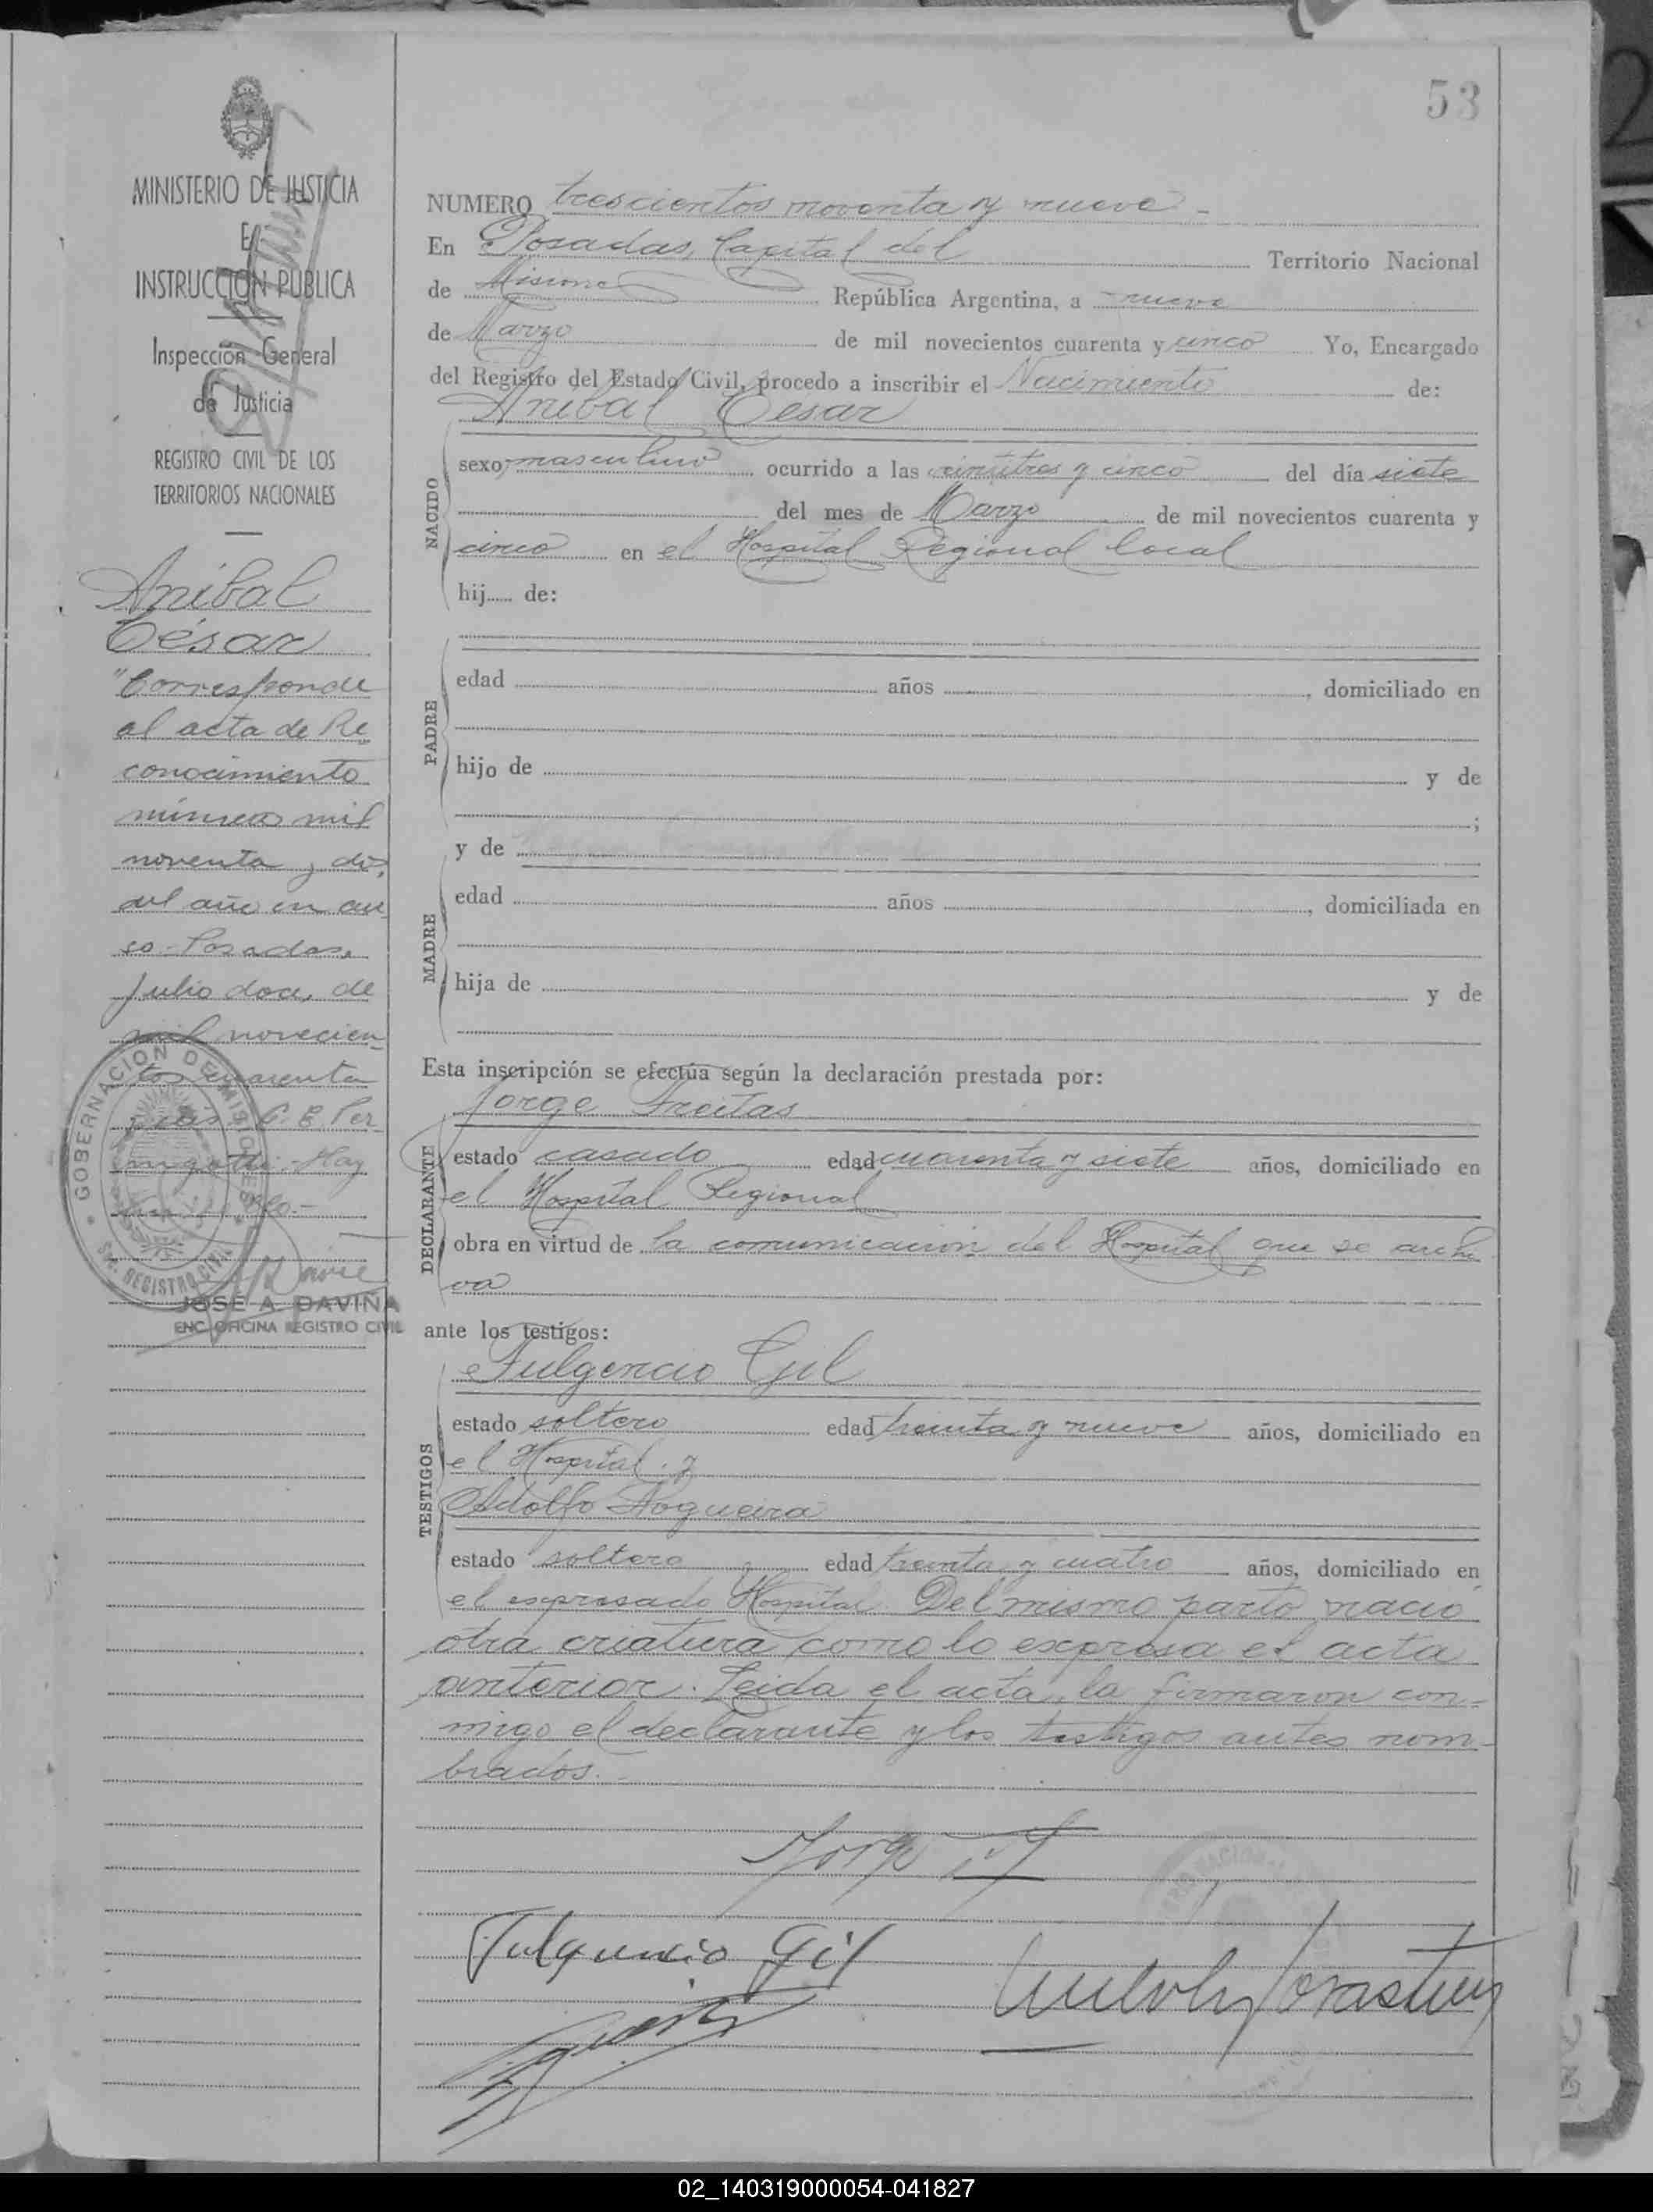 53
MINISTERIO DE JUSTICIA
E
INSTRUCCION PUBLICA
Inspección General
de Justicia
REGISTRO CIVIL DE LOS
TERRITORIOS NACIONALES
Aníbal
César
"Corresponde
al acta de Re
conocimiento
número mil
noventa y dos,
del año en cur
so-Posadas,
Julio doce, de
mil novecien
tos cuarenta
GOBERNACION DE MISIONES
REGISTRO CIVIL
JOSÉ A. DAVIÑA
ENC. OFICINA REGISTRO CIVIL
NUMERO trescientos noventa y nueve -
En Posadas, Capital del Territorio Nacional
de Misiones República Argentina, a nueve
de Marzo de mil novecientos cuarenta y cinco Yo, Encargado
del Registro del Estado Civil, procedo a inscribir el Nacimiento de:
Anibal Cesar
NACIDO
sexo masculino ocurrido a las veintitres y cinco del día siete
del mes de Marzo de mil novecientos cuarenta y
cinco en el Hospital Regional local
hij..... de:
PADRE
edad años , domiciliado en
hijo de y de
;
y de
MADRE
edad años , domiciliada en
hija de y de
Esta inscripción se efectúa según la declaración prestada por:
Jorge Freitas
DECLARANTE
estado casado edad cuarenta y siete años, domiciliado en
el Hospital Regional
obra en virtud de la comunicación del Hospital que se archi
va
ante los testigos:
Fulgencio Gil
TESTIGOS
estado soltero edad treinta y nueve años, domiciliado en
el Hospital. y
Adolfo Nogueira
estado soltero edad treinta y cuatro años, domiciliado en
el expresado Hospital. Del mismo parto nació
otra criatura como lo expresa el acta
anterior. Leida el acta, la firmaron con-
migo el declarante y los testigos antes nom-
brados.-
Jorge
Fulgencio Gil
02_140319000054-041827